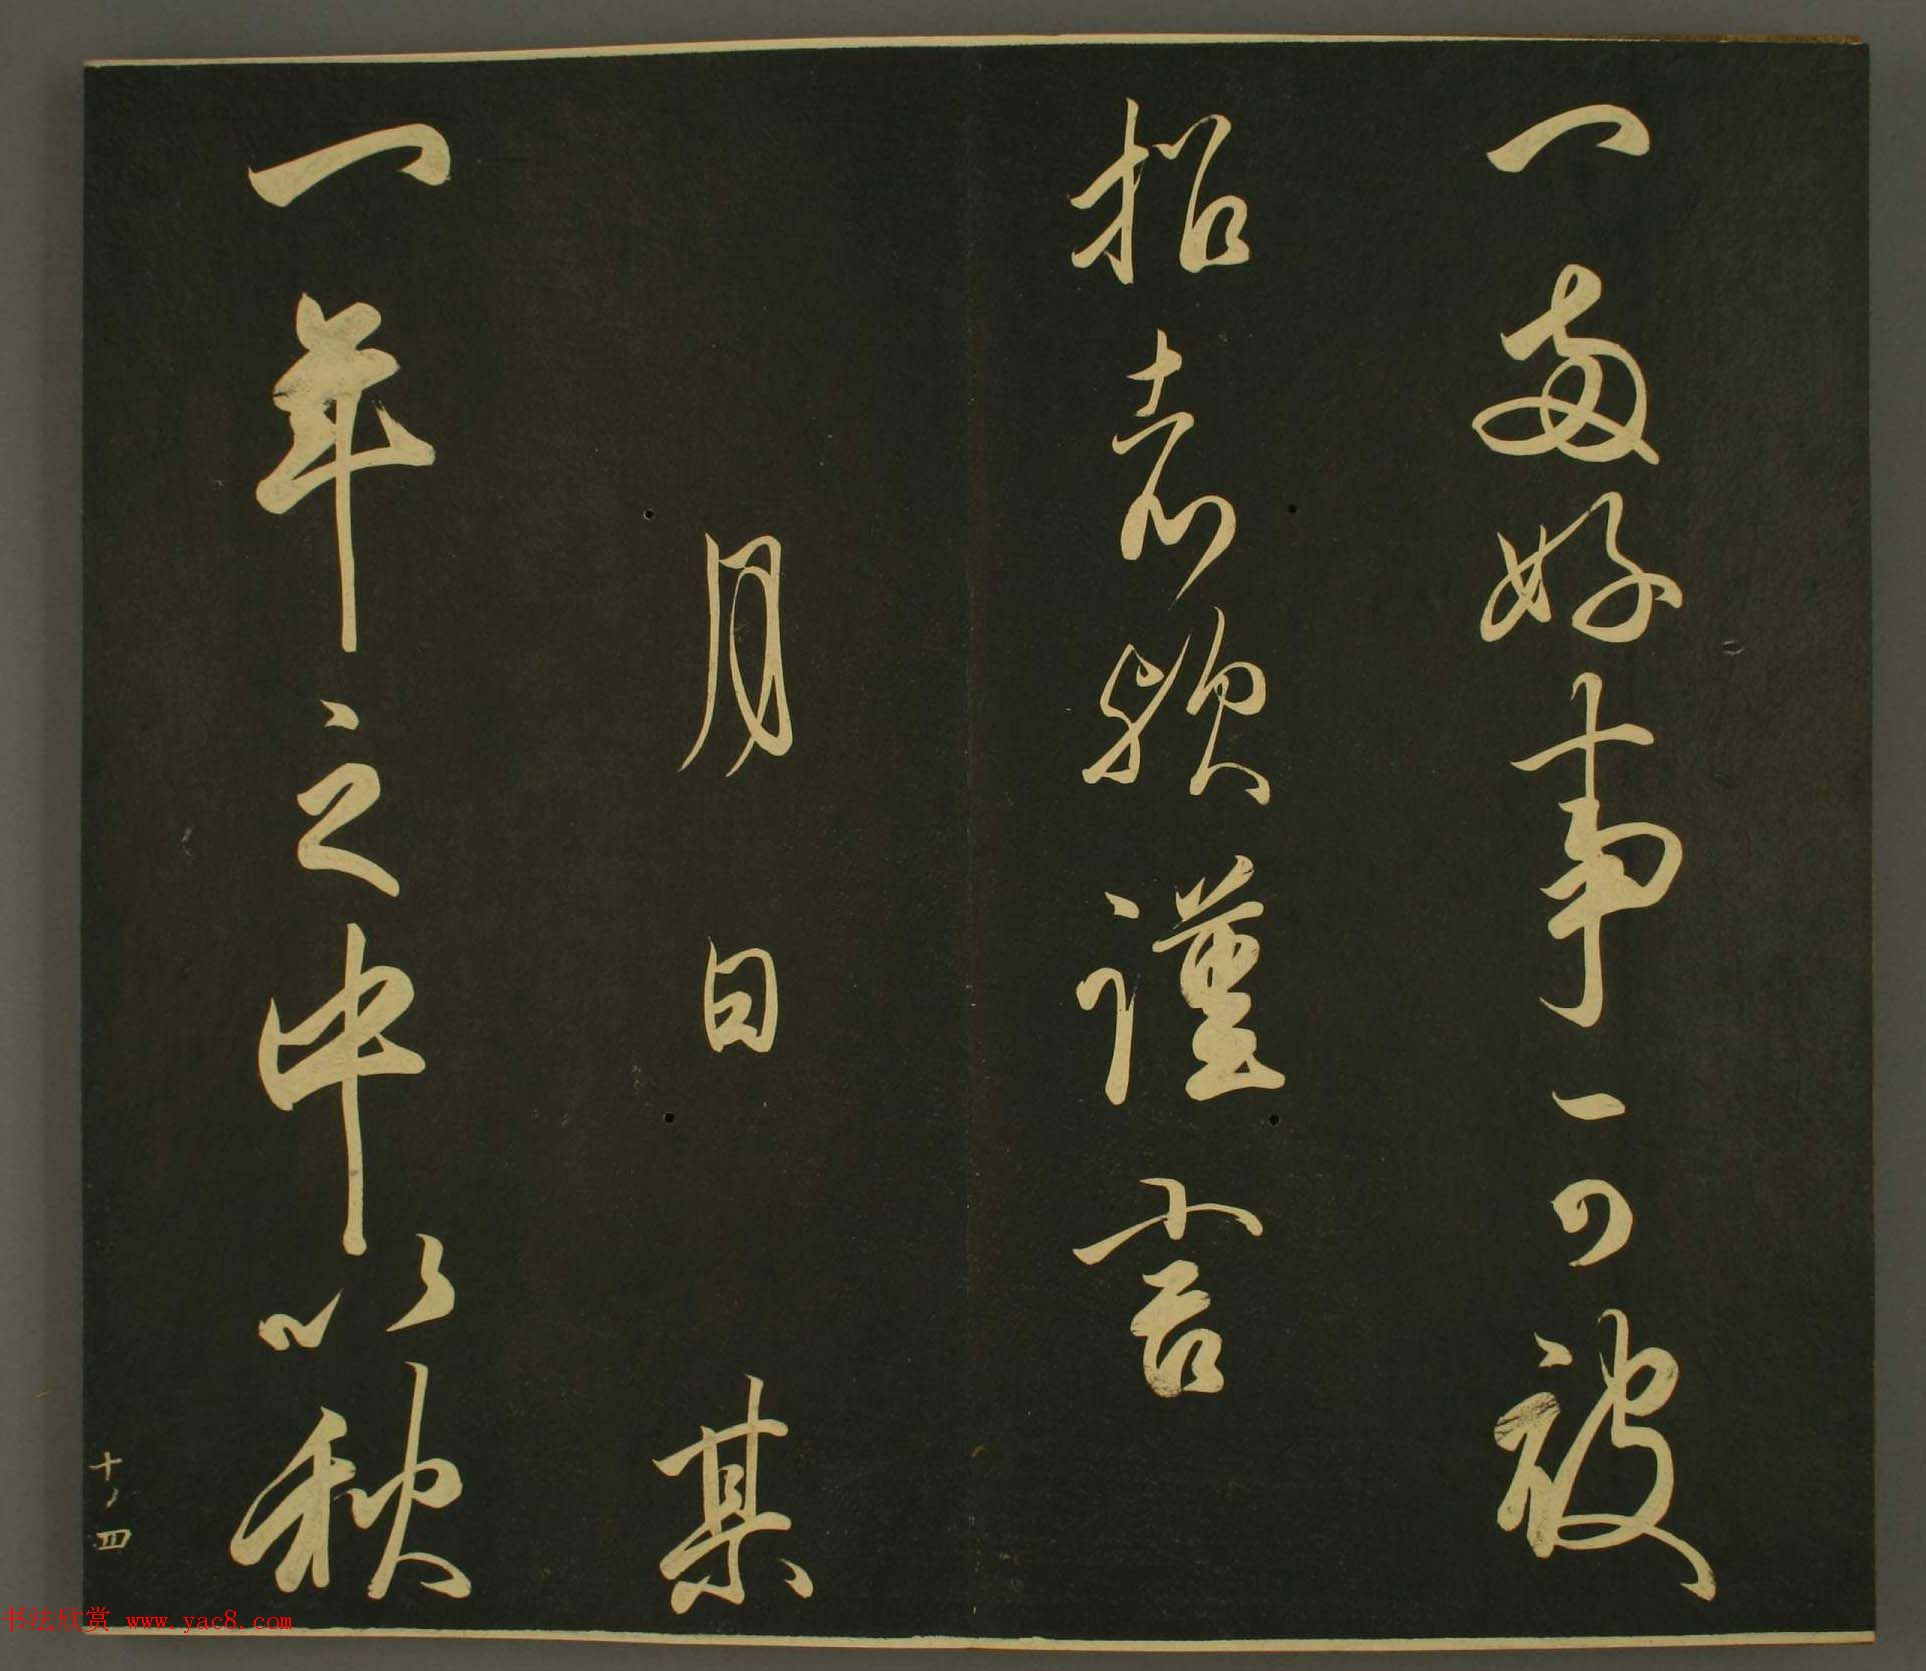 一両好事可被
招歟謹言
月日 某
一年之中以秋
十ノ四
书法欣赏 www.yac8.com